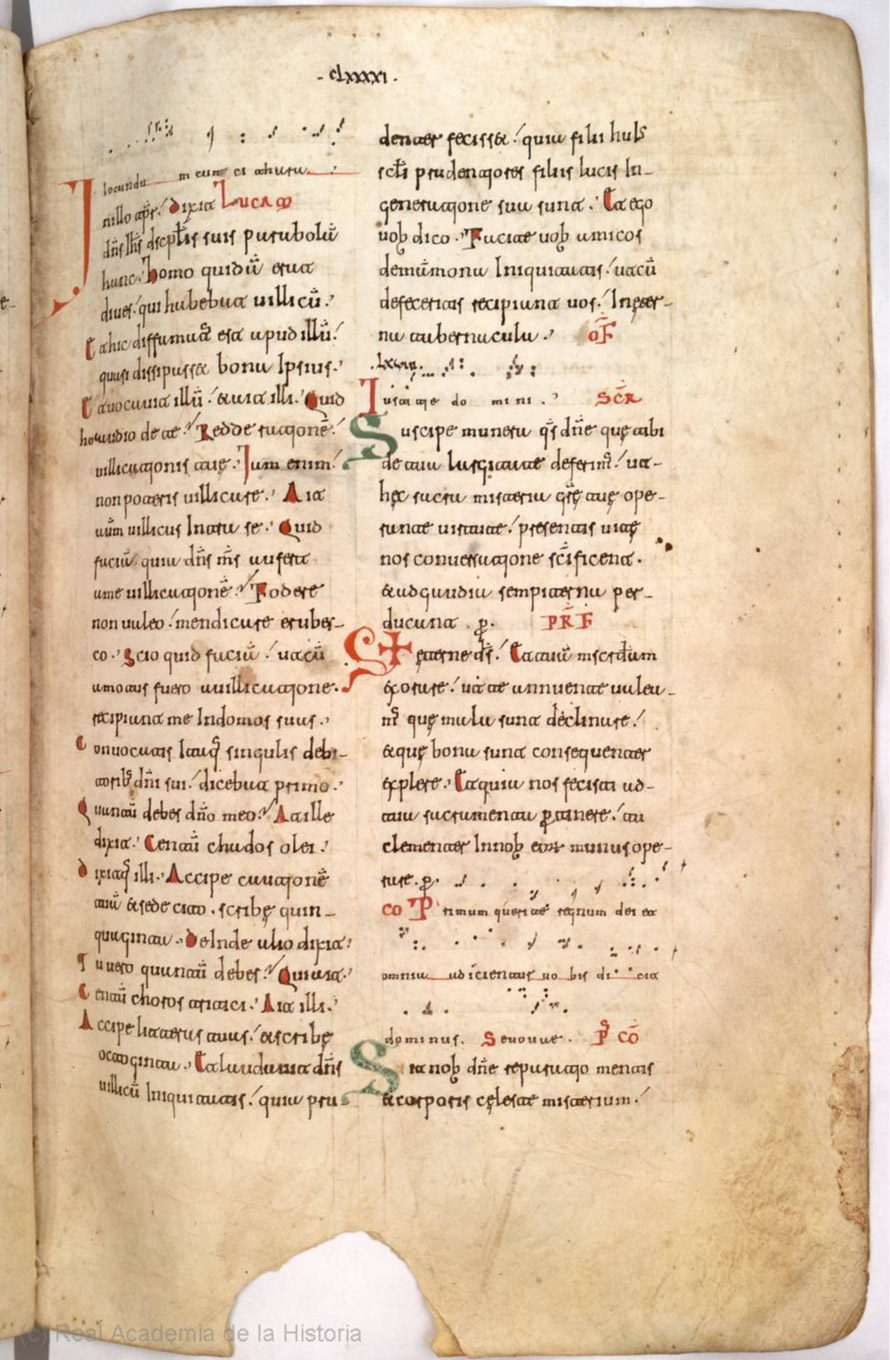 ·clxxxxi·
Iocunda mecum et ahura
In illo tp̄r. dixit Lucam
dn̄s ih̄s discip̄lis suis parabolā
hanc. homo quidā erat
dives. qui habebat villicū.
Et hic diffamat᷒ est apud illū.
quasi dissipasset bona ipsius.
Et vocavit illū. et ait illi. Quid
hoc audio de te. Redde rationē
villicationis tue. Iam enim
non poteris villicare. Ait
aūm villicus intra se. Quid
faciā. quia dn̄s m̄s aufert
a me villicationē. Fodere
non valeo. mendicare erubes-
co. Scio quid faciā. ut cū
amotus fuero a villicatione.
recipiant me in domos suas.
Convocatis itaq; singulis debi-
torib; dn̄i sui. dicebat primo.
Quantū debes dn̄o meo. At ille
dixit. Centū chados olei.
Dixitq; illi. Accipe cautionē
tuā et sede cito. scribe quin-
quaginta. Deinde alio dixit.
Tu vero quantū debes. Qui ait.
Centū choros tritici. Ait illi.
Accipe litteras tuas. et scribe
octoginta. Et laudavit dn̄s
villicū iniquitatis. quia pru-
denter fecisset. quia filii hui᷒
scl̄i prudentiores filiis lucis in
generatione sua sunt. Et ego
vob̄ dico. Faciate vob̄ amicos
de māmona iniquitatis. ut cū
defeceritis recipiant vos. in eter-
na tabernacula. oF̄
.lxviii.
Iusticie domini. Scr̄
Suscipe munera q̄s dn̄e que tibi
de tua largitate deferim᷒. ut
hec sacra misteria gr̄e tue ope-
rante virtute. presentis vite
nos conversatione sc̄ificent.
et ad gaudia sempiterna per-
ducant. p̄. PRF̄
eterne ds̄. Et tuā mscrdiam
exorare. ut te annuente valea-
m᷒ que mala sunt declinare.
et que bona sunt consequenter
explere. Et quia nos fecisti ad
tua sacramenta p̄tinere. tu
clementer in nob̄ eor munus ope-
rare. p̄.
co Primum querite regnum dei et
omnia adicientur vobis dicit
dominus. Sevovae. P̄ co̅
Sit nob̄ dn̄e reparatio mentis
et corporis celeste misterium.